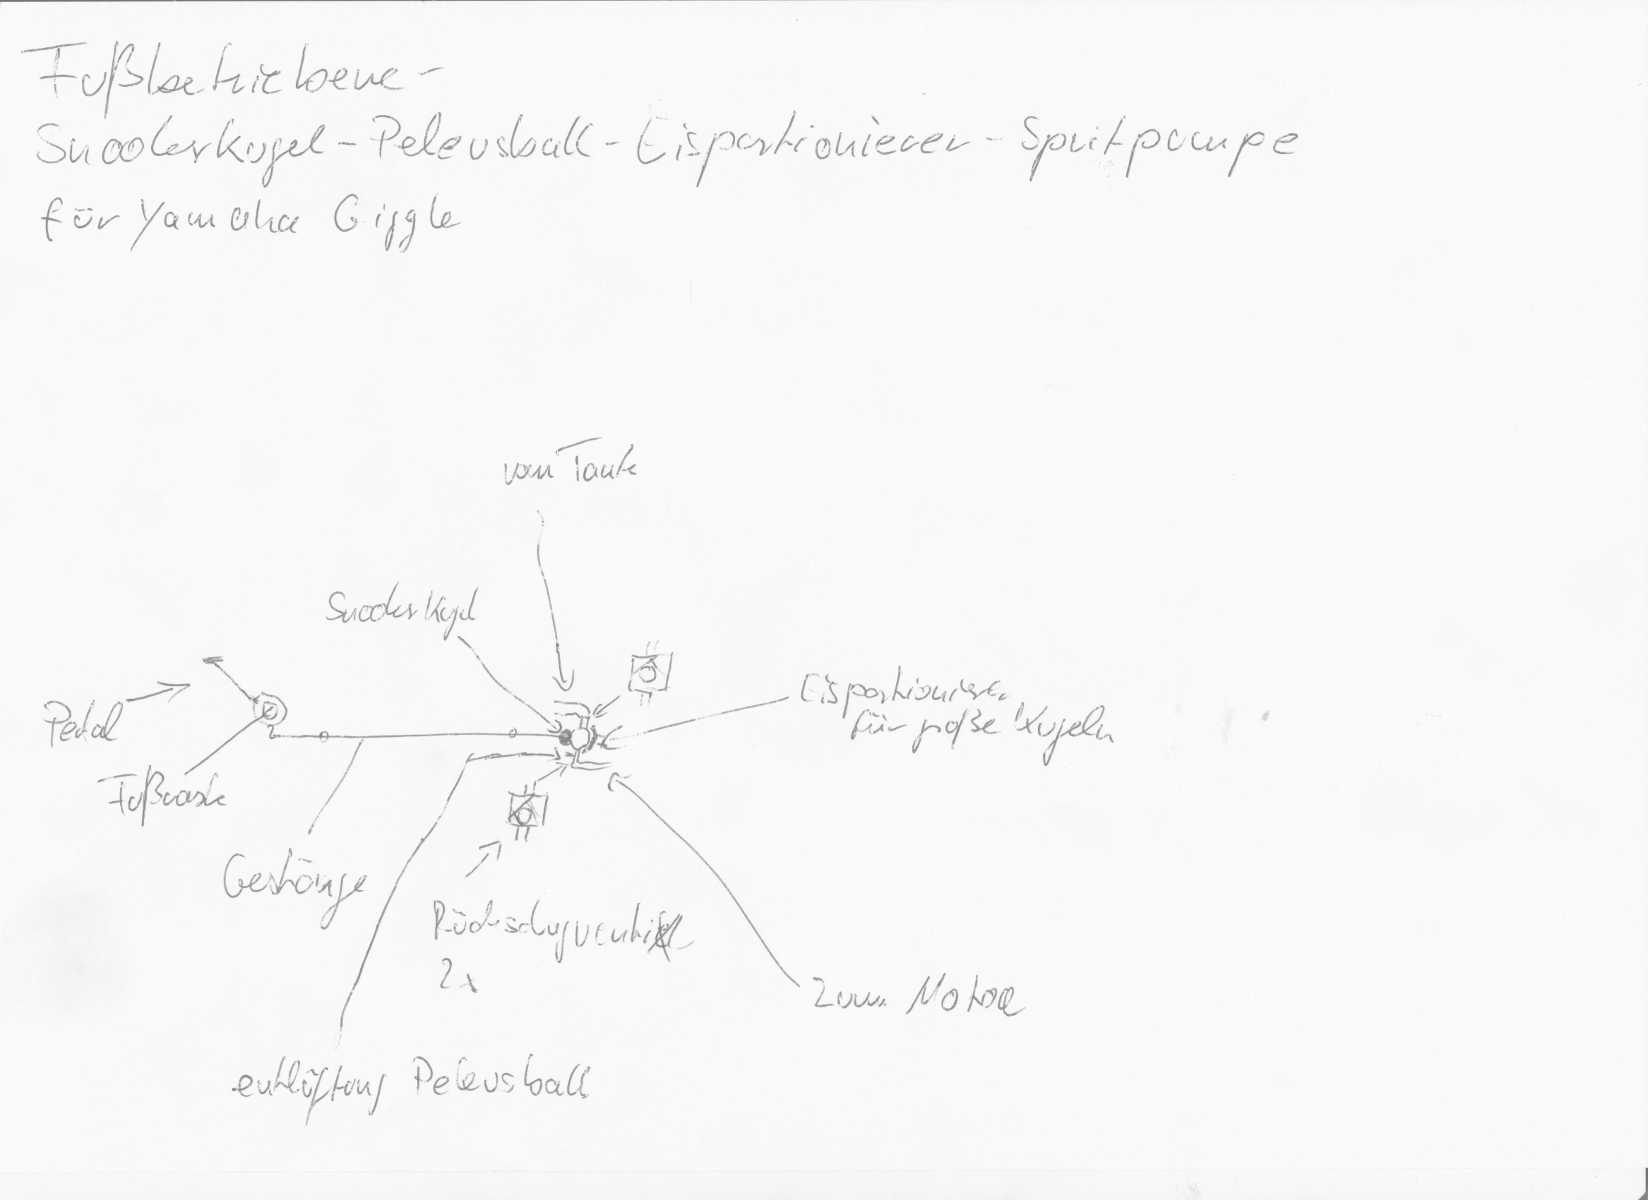 Fußbetriebene-
Snookerkugel-Peleusball-Eisportionierer-Spritpumpe
für Yamaha Giggle
vom Tank
Snookerkugel
Eisportionierer
für große Kugeln
Pedal
Fußraste
Gestänge
Rückschlagventil
2x
zum Motor
entlüftung Peleusball